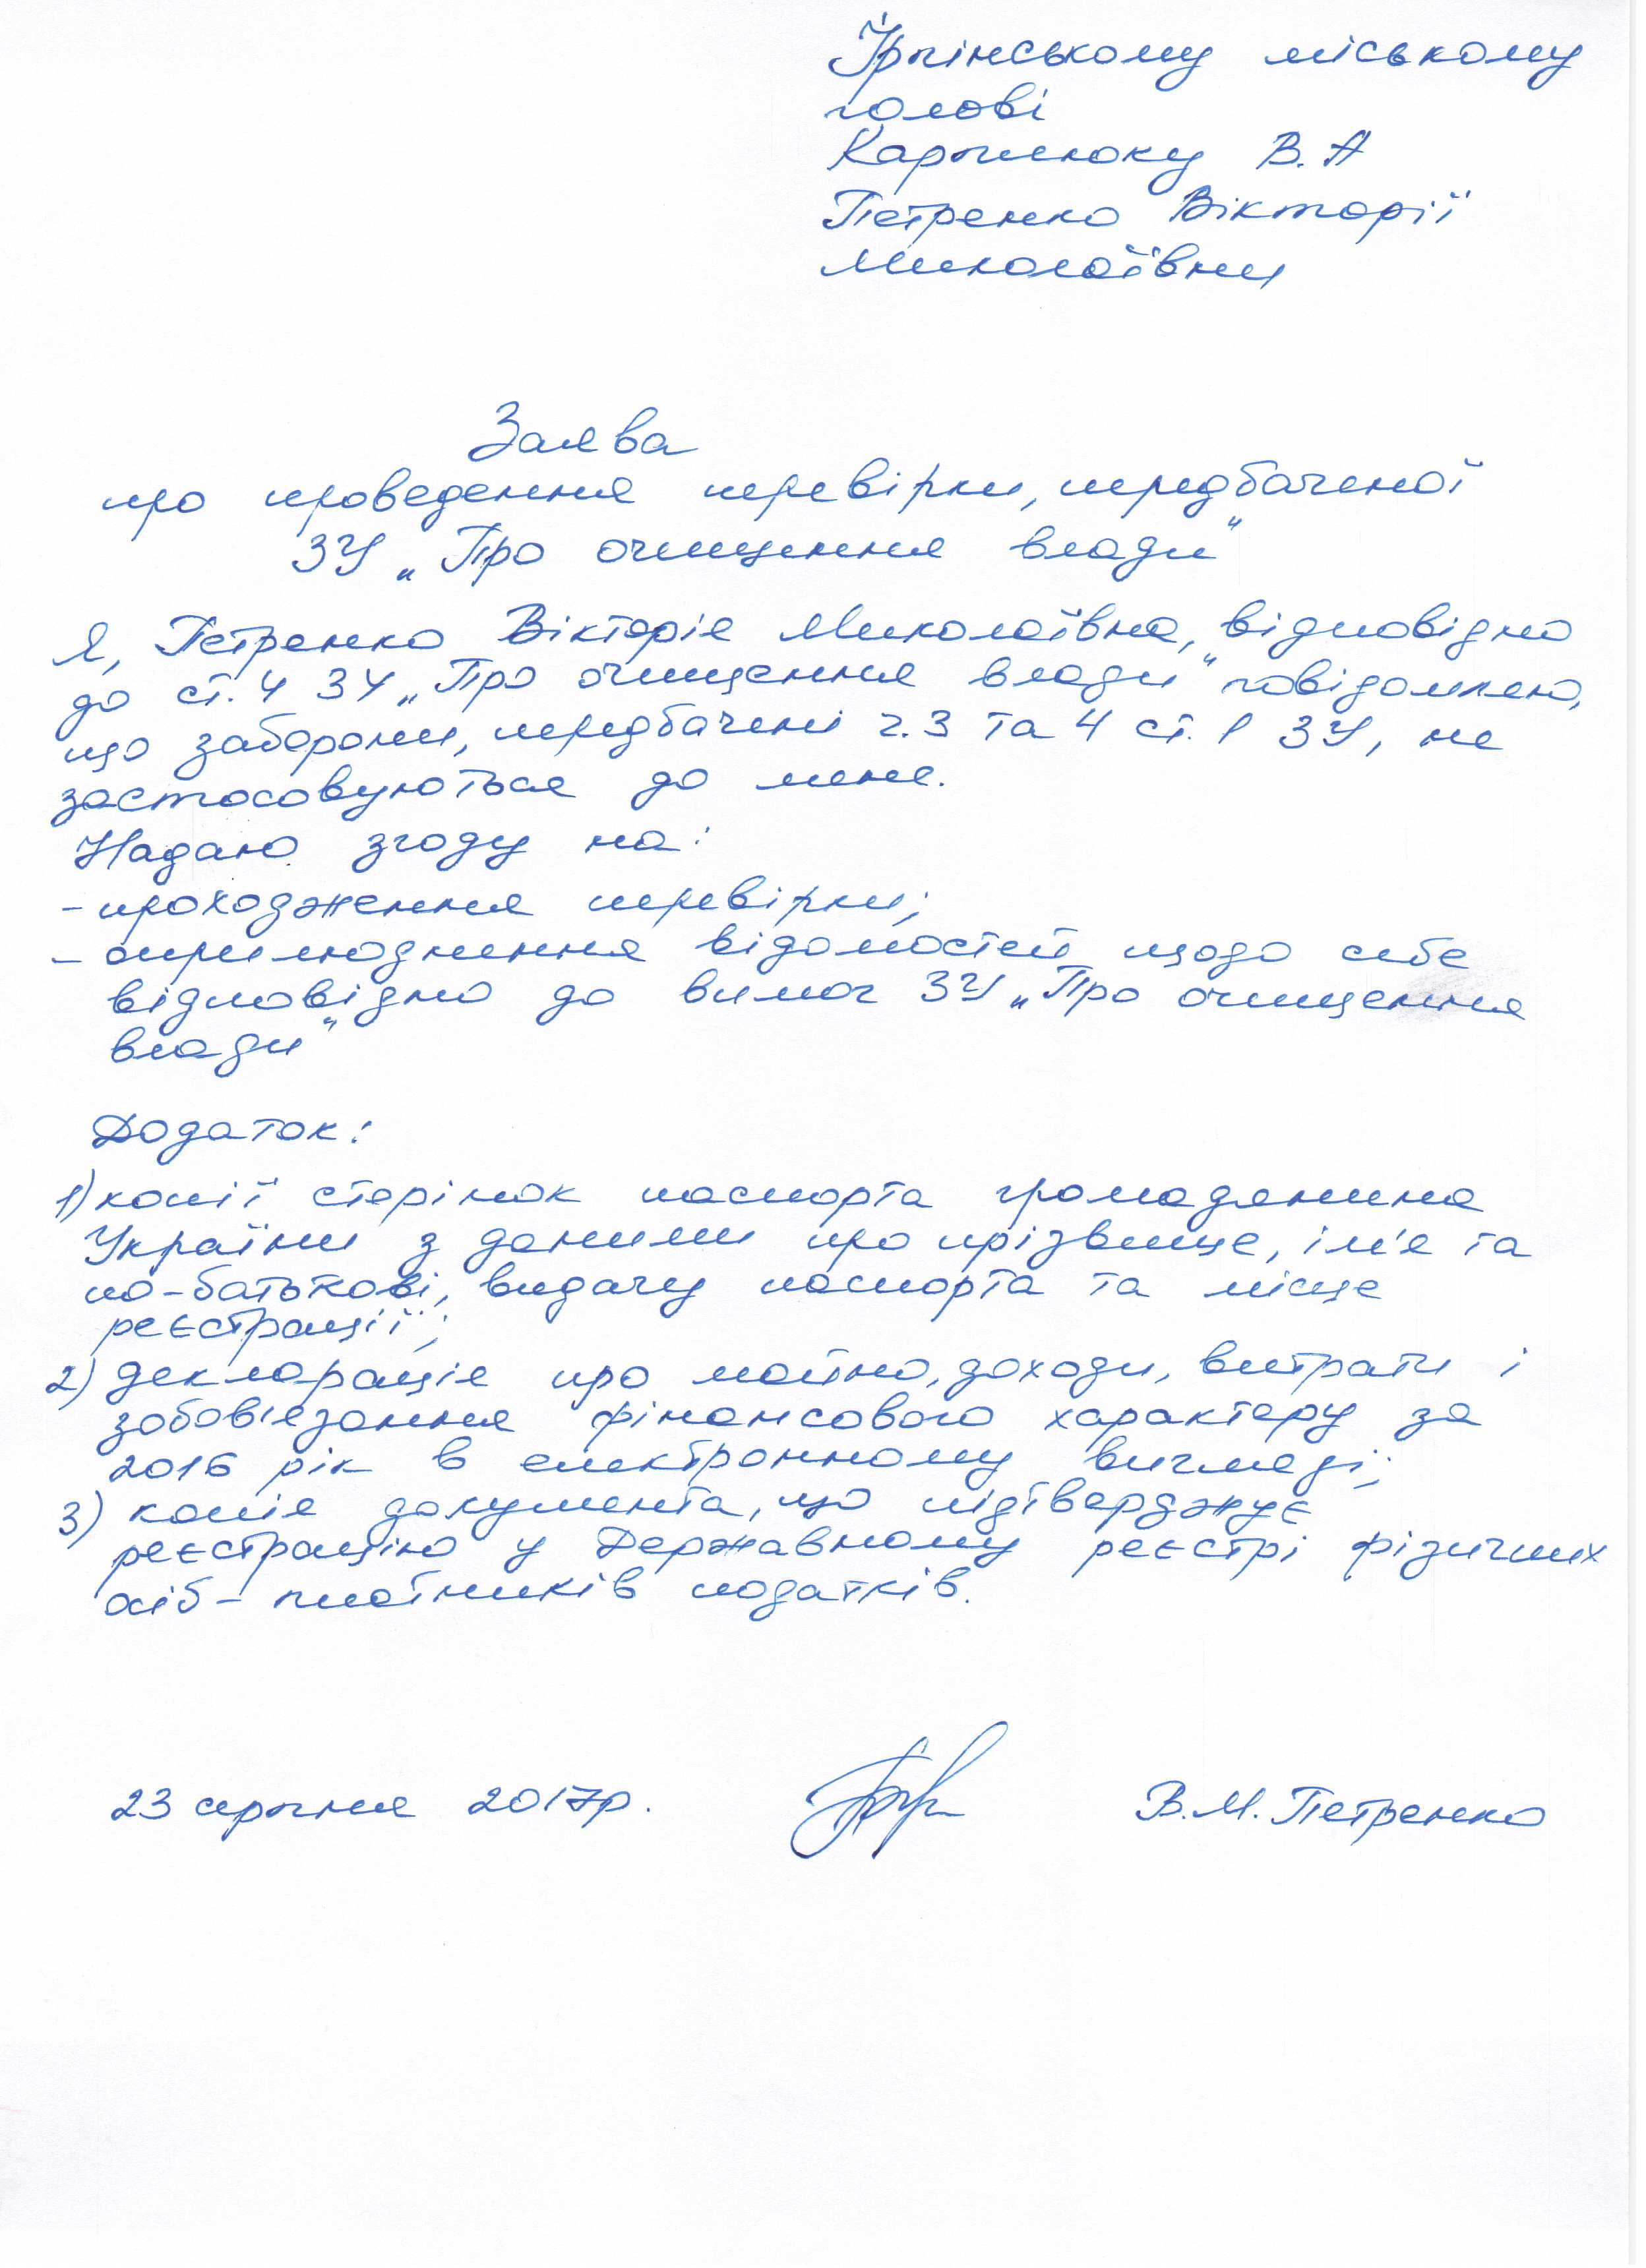 Ірпінському міському
голові
Карплюку В.А
Петренко Вікторії
Миколаївни
Заява
про проведення перевірки, передбаченої
ЗУ „Про очищення влади"
Я, Петренко Вікторія Миколаївна, відповідно
до ст. 4 ЗУ „Про очищення влади" повідомляю,
що заборони, передбачені ч.3 та 4 ст. 1 ЗУ, не
застосовуються до мене.
Надаю згоду на:
- проходження перевірки;
- оприлюднення відомостей щодо себе
відповідно до вимог ЗУ „Про очищення
влади"
Додаток:
1) копії сторінок паспорта громадянина
України з даними про прізвище, ім'я та
по-батькові, видачу паспорта та місце
реєстрації;
2) декларація про майно, доходи, витрати і
зобов'язання фінансового характеру за
2016 рік в електронному вигляді;
3) копія документа, що підтверджує
реєстрацію у Державному реєстрі фізичних
осіб - платників податків.
23 серпня 2017р. В.М. Петренко